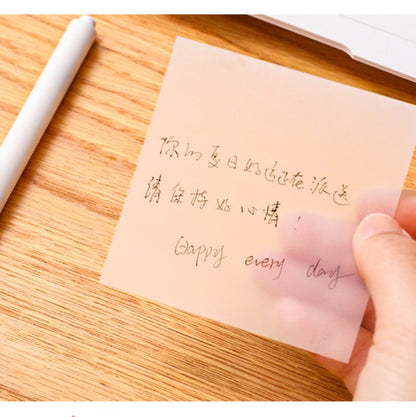 你的夏日好运还在派送
请保持好心情！
Happy every day